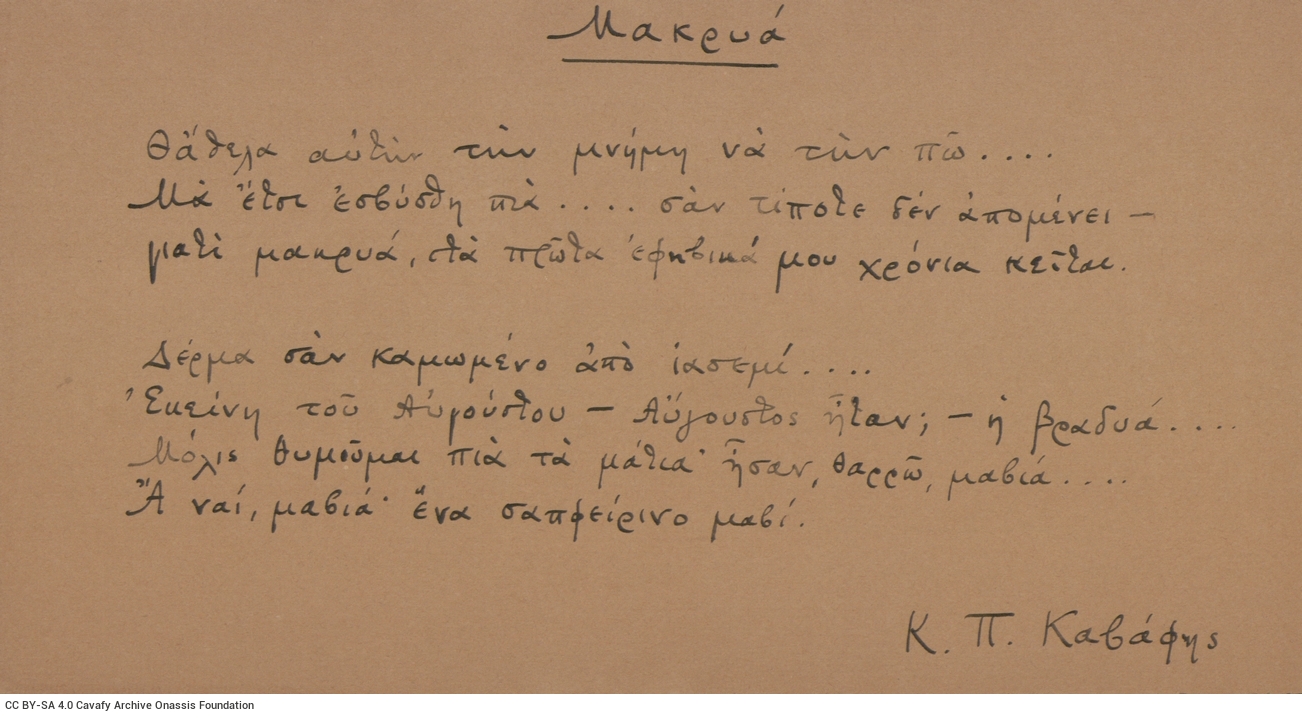 Μακρυά
Θἄθελα αὐτὴν τὴν μνήμη νὰ τὴν πῶ....
Μὰ ἔτσι ἐσβύσθη πιὰ.... σὰν τίποτε δέν ἀπομένει —
γιατὶ μακρυά, στὰ πρῶτα ἐφηβικά μου χρόνια κεῖται.
Δέρμα σὰν καμωμένο ἀπὸ ἰασεμί....
Ἐκείνη τοῦ Αὐγούστου — Αὔγουστος ἦταν; — ἡ βραδυά....
Μόλις θυμοῦμαι πιὰ τὰ μάτια· ἦσαν, θαρρῶ, μαβιά....
Ἄ ναί, μαβιά· ἕνα σαπφείρινο μαβί.
Κ. Π. Καβάφης
CC BY-SA 4.0 Cavafy Archive Onassis Foundation